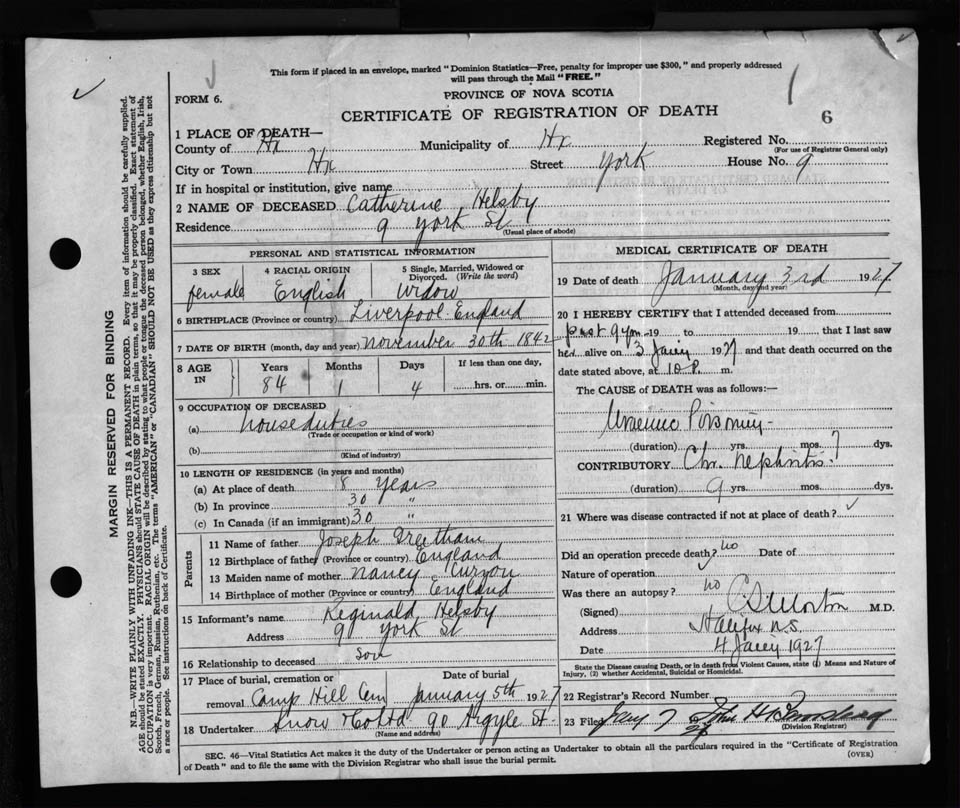 This form if placed in an envelope, marked "Dominion Statistics—Free, penalty for improper use $300," and properly addressed
will pass through the Mail "FREE."
FORM 6.
PROVINCE OF NOVA SCOTIA
CERTIFICATE OF REGISTRATION OF DEATH
6
1 PLACE OF DEATH—
County of Hx Municipality of Hx Registered No.
(For use of Registrar General only)
City or Town Hx Street York House No. 9
If in hospital or institution, give name
2 NAME OF DECEASED Catherine Helsby
Residence 9 York St
(Usual place of abode)
PERSONAL AND STATISTICAL INFORMATION
3 SEX 4 RACIAL ORIGIN 5 Single, Married, Widowed or Divorced. (Write the word)
female English Widow
6 BIRTHPLACE (Province or country) Liverpool England
7 DATE OF BIRTH (month, day and year) November 30th 1842
8 AGE IN Years Months Days If less than one day,
84 1 4 hrs. or min.
9 OCCUPATION OF DECEASED
(a) house duties
(Trade or occupation or kind of work)
(b)
(Kind of industry)
10 LENGTH OF RESIDENCE (in years and months)
(a) At place of death 8 years
(b) In province 30 "
(c) In Canada (if an immigrant) 30 "
Parents
11 Name of father Joseph
12 Birthplace of father (Province or country) England
13 Maiden name of mother Nancy Curzon
14 Birthplace of mother (Province or country) England
15 Informant's name Reginald Helsby
Address 9 York St
16 Relationship to deceased Son
17 Place of burial, cremation or removal Date of burial
Camp Hill Cem January 5th 1927
18 Undertaker Snow & Co Ltd 90 Argyle St.
(Name and address)
MEDICAL CERTIFICATE OF DEATH
19 Date of death January 3rd 1927
(Month, day and year)
20 I HEREBY CERTIFY that I attended deceased from
past 9 19 to 19 that I last saw
her alive on 3 1927 and that death occurred on the
date stated above, at 10 P. m.
The CAUSE of DEATH was as follows:—
Uraemic Poisoning
(duration) yrs. mos. dys.
CONTRIBUTORY Chr. Nephritis
(duration) 9 yrs. mos. dys.
21 Where was disease contracted if not at place of death?
Did an operation precede death? no Date of
Nature of operation
Was there an autopsy? no
(Signed) Morton M.D.
Address Halifax N.S.
Date 4 1927
State the Disease causing Death, or in death from Violent Causes, state (1) Means and Nature of
Injury, (2) whether Accidental, Suicidal or Homicidal.
22 Registrar's Record Number
23 Filed
(Division Registrar)
SEC. 46—Vital Statistics Act makes it the duty of the Undertaker or person acting as Undertaker to obtain all the particulars required in the "Certificate of Registration
of Death" and to file the same with the Division Registrar who shall issue the burial permit.
(OVER)
MARGIN RESERVED FOR BINDING
N.B.—WRITE PLAINLY WITH UNFADING INK—THIS IS A PERMANENT RECORD. Every item of information should be carefully supplied.
AGE should be stated EXACTLY. PHYSICIANS should STATE CAUSE OF DEATH in plain terms, so that it may be properly classified. Exact statement of
OCCUPATION is very important. RACIAL ORIGIN will be described by stating to what people or tongue the deceased person belonged, whether English, Irish,
Scotch, French, German, Russian, Ruthenian, etc. The terms "AMERICAN" or "CANADIAN" SHOULD NOT BE USED as they express citizenship but not
a race or people. See instructions on back of Certificate.